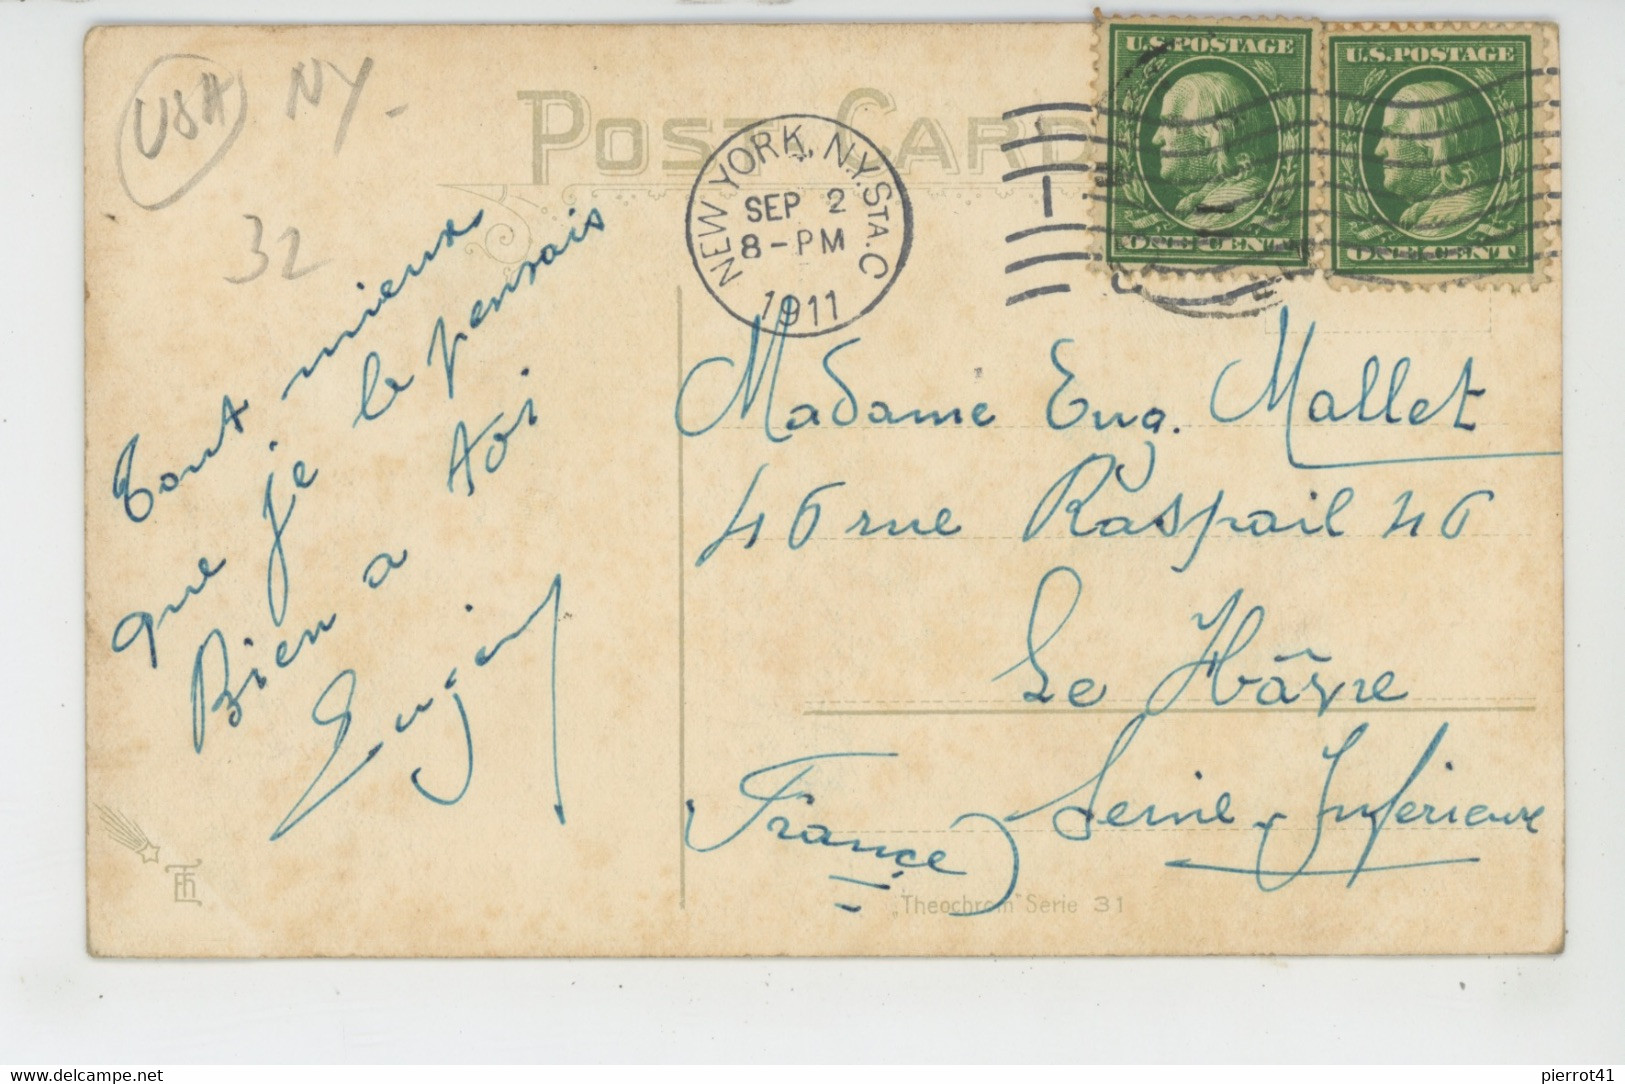 USA NY -
32
POST CARD
U.S. POSTAGE
ONE CENT
U.S. POSTAGE
ONE CENT
NEW YORK, N.Y. STA. C
SEP 2
8-PM
1911
Tout mieux
que je le pensais
Bien a toi
Eugène
Madame Eug. Mallet
46 rue Raspail 46
Le Hâvre
Seine-Inférieure
France
„Theochrom" Serie 31
pierrot41